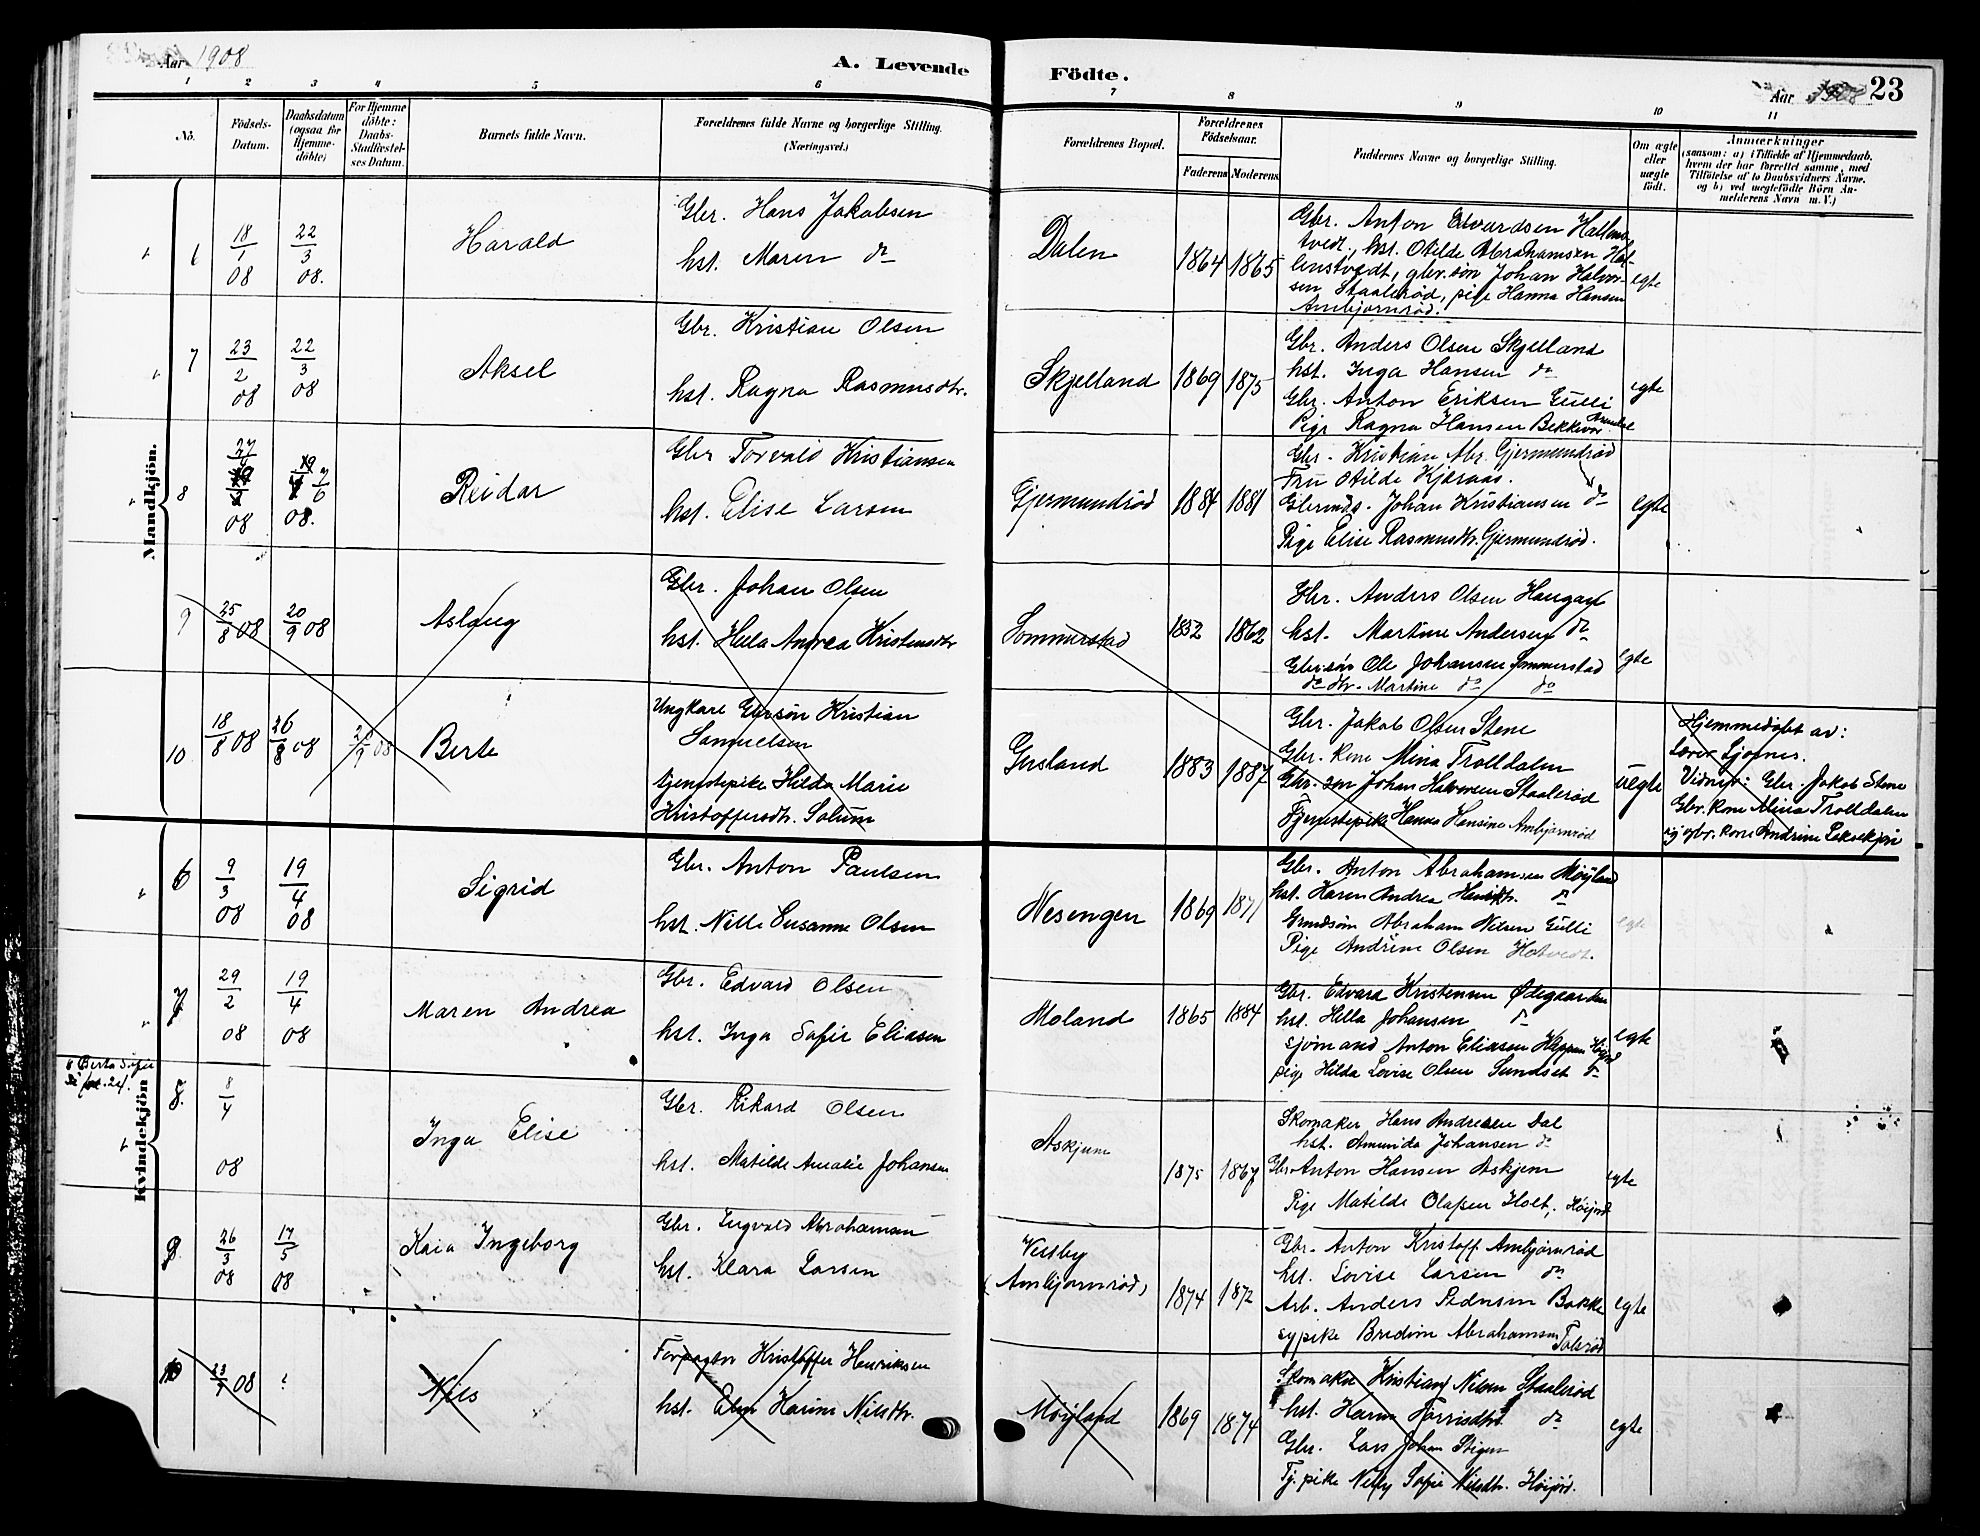 Aar 1908
A. Levende Födte.
Aar 1908 23
1 2 3 4 5 6 7 8 9 10 11
No.
Födsels-Datum.
Daabsdatum (ogsaa for Hjemme-döbte)
For Hjemme döbte: Daabs-Stadfæstel-ses Datum.
Barnets fulde Navn.
Forældrenes fulde Navne og borgerlige Stilling.
(Næringsvei.)
Forældrenes Bopæl.
Forældrenes Födselsaar.
Faderens Moderens
Faddernes Navne og borgerlige Stilling.
Om ægte eller uægte födt.
Anmærkninger
(saasom: a) i Tilfælde af Hjemmedaab,
hvem der har forrettet samme, med
Tilföielse af to Daabsvidners Navne,
og b) ved uægtefödte Börn An-
melderens Navn m. V.)
Mandkjön.
6 18/1 08 22/3 08. Harald
Gbr. Hans Jakobsen
hst. Maren do
Dalen 1864 1865
Gbr. Anton Edvardsen Hallens-
tvedt, hst. Otilde Abrahamsen Hal-
lenstvedt, gbr. søn Johan Halvor-
sen Staalerød, pige Hanna Hansen
Ambjørnrød.
egte
7 23/2 08 22/3 08 Aksel
Gbr. Kristian Olsen
hst. Ragna Rasmusdtr.
Skjelland 1869 1875
Gbr. Anders Olsen Skjelland
hst. Inga Hansen do
Gbr. Anton Eriksen Gulli
Pige Ragna Hansen Bekkevar
egte
8 27/4 08 7/6 08. Reidar
Gbr Torvald Kristiansen
hst. Elise Larsen
Gjermundrød 1884 1881
Gbr. Kristian Abr. Gjermundrød
Fru Otilde Kjæraas.
Gbrmds. Johan Kristiansen do
Pige Elise Rasmusdtr. Gjermundrød.
egte
9 25/8 08 20/9 08 Aslaug
Gbr. Johan Olsen
hst. Hella Andrea Kristensdtr
Sommerstad 1852 1862
Gbr. Anders Olsen Haugan
hst. Martine Andersen do
Gbr. søn Ole Johansen Sommerstad
do dtr. Martine do do
egte
10 18/8 08 26/8 08 20/9 08 Berte
Ungkarl Gbrsøn Kristian
Samuelsen
tjenestepike Hilda Marie
Kristoffersdtr. Solum
Gusland 1883 1887
Gbr. Jakob Olsen Stene
Gbr. kone Mina Trolldalen
Gbr. søn Johan Halvorsen Staalerød
Tjenestepike Hanna Hansine Ambjørnrød
uegte
Hjemmedøbt av:
Lærer Gjøsnes.
Vidner: Gbr. Jakob Stene
Gbr. kone Mina Trolldalen
og gbr. kone Andrine
Kvindekjön
6 9/3 08 19/4 08 Sigrid
Gbr. Anton Paulsen
hst. Nille Susanne Olsen
Nesengen 1869 1871
Gbr. Anton Abrahamsen Møyland
hst. Karen Andrea Henrikdtr. do
Grmdsøn Abraham Nilsen Gulli
Pige Andrine Olsen Hotvedt.
egte
7 29/2 08 19/4 08 Maren Andrea
Gbr. Edvard Olsen
hst. Inga Sofie Eliasen
Moland 1865 1884
Gbr. Edvard Kristensen Ødegaarden
hst. Hella Johansen do
Sjømand Anton Eliasen
pige Hilda Lovise Olsen Sundset do
egte
8 Berta Sofie
Se pr. 24.
8. 8/4 08 Inga Elise
Gbr. Rikard Olsen
hst. Matilde Amalie Johansen
Askjem 1875 1867
Skomaker Hans Andresen Dal
hst. Amunda Johansen do
Gbr. Anton Hansen Askjem
Pige Matilde Olafsen Holt, Høijord
egte
9 26/3 08 17/5 08 Kaia Ingeborg
Gbr. Ingvald Abrahamsen
hst. Klara Larsen
Vestby
(Ambjørnrød) 1874 1872
Gbr. Anton Kristoff. Ambjørnrød
hst. Lovise Larsen do
Arb. Anders Pedersen Bakke
sypike Bredine Abrahamsen Tolsrød
egte
10 23/7 08 Nils
Forpagter Kristoffer Henriksen
hst. Elen Karine Nilsdtr.
Møyland 1869 1874
Skomaker Kristian Nilsen Staalerød
hst. Karen Torrisdtr. do
Gbr. Lars Johan Stigen
Tj. pike Nelly Sofie Nilsdtr. Høijord.
egte